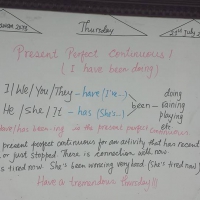 Thursday
July
Present Perfect Continuous!
(I have been doing)
I/We/You/They - have (I've...)
He/She/It - has (She's...)
been
doing
raining
playing
etc
have/has been -ing is the present perfect continuous
present perfect continuous for an activity that has recent
or just stopped. There is connection with now.
is tired now. She's been working very hard (She's tired now)
Have a tremendous thursday!!!